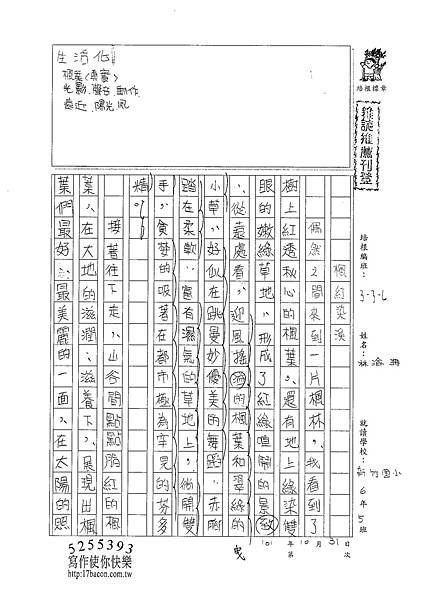 生活化
楓葉(真實)
光影、聲音、動作
遠近、陽光、風
培根標章
推談推薦刊登
培根編班：
3-3-L
姓名：
林
就讀學校：
新竹國小
6年5班
101年10月31日
第 次
楓紅染溪
偶然之間來到一片楓林，我看到了
樹上紅透秋心的楓葉，還有地上綠染雙
眼的嫩綠草地，形成了紅綠喧鬧的景致
，從遠處看，迎風搖洒的楓葉和翠綠的
小草，好似在跳曼妙優美的舞蹈，赤腳
踏在柔軟、富有濕氣的草地上，徜開雙
手，貪婪的吸著在都市極為罕見的芬多
精。
接著往下走，山谷間點點腥紅的楓
葉，在大地的滋潤、滋養下，展現出楓
葉們最好、最美麗的一面，在太陽的照
曳
5255393
寫作使你快樂
http://17bacon.com.tw